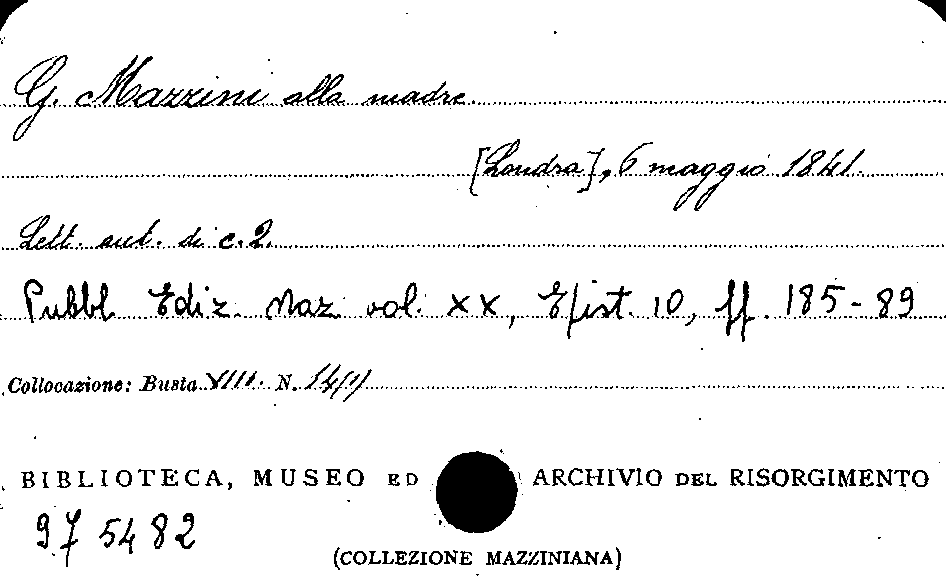 G. Mazzini alla madre.
[Londra], 6 maggio 1841.
Lett. aut. di c. 2.
Pubbl. Ediz. Naz. vol. XX, Epist. 10, pp. 185-89
Collocazione: Busta VIII. N. 14/1/
BIBLIOTECA, MUSEO ED ARCHIVIO DEL RISORGIMENTO
975482
(COLLEZIONE MAZZINIANA)